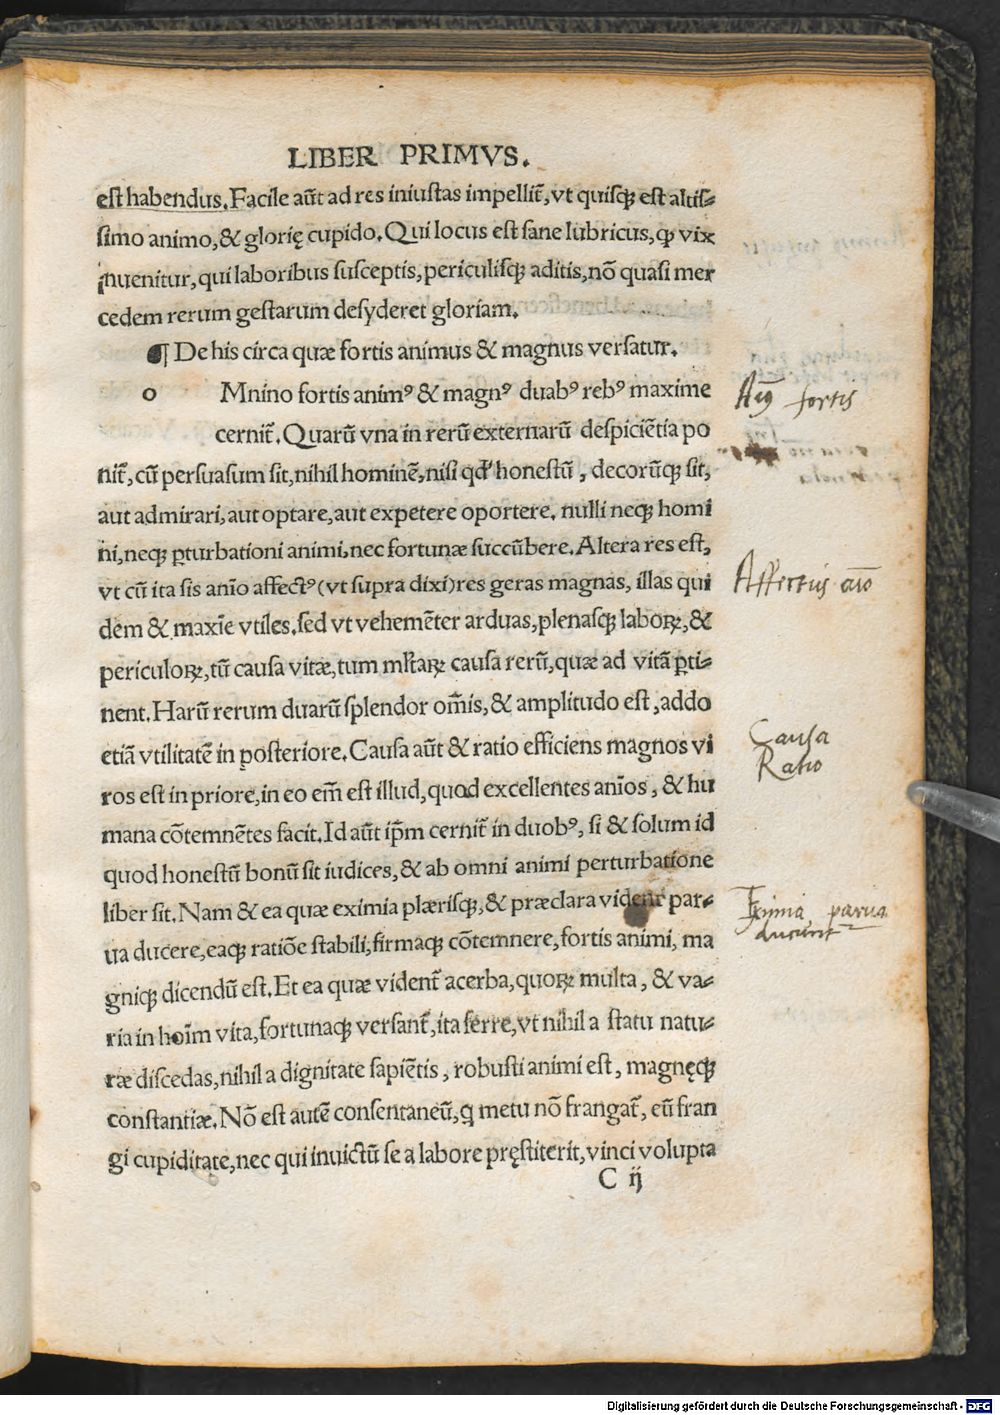 LIBER PRIMVS.
est habendus. Facile aũt ad res iniustas impellit̃, vt quisqꝫ est altis⸗
simo animo, & glorię cupido. Qui locus est sane lubricus, ꝙ vix
inuenitur, qui laboribus susceptis, periculisqꝫ aditis, nõ quasi mer
cedem rerum gestarum desyderet gloriam.
¶ De his circa quæ fortis animus & magnus versatur.
o Mnino fortis animꝰ & magnꝰ duabꝰ rebꝰ maxime
Aĩꝰ fortis
cernit̃. Quarũ vna in rerũ externarũ despiciẽtia po
nit̃, cũ persuasum sit, nihil hominẽ, nisi qđ honestũ, decorũqꝫ sit,
aut admirari, aut optare, aut expetere oportere. nulli neqꝫ homi
ni, neqꝫ ꝑturbationi animi, nec fortunæ succũbere. Altera res est,
vt cũ ita sis anĩo affectꝰ (vt supra dixi) res geras magnas, illas qui
Affectus aĩo
dem & maxĩe vtiles. sed vt vehemẽter arduas, plenasqꝫ laboꝝ, &
periculoꝝ, tũ causa vitæ, tum ml̃taꝝ causa rerũ, quæ ad vitã ꝑti⸗
nent. Harũ rerum duarũ splendor om̃is, & amplitudo est, addo
etiã vtilitatẽ in posteriore. Causa aũt & ratio efficiens magnos vi
Causa
Ratio
ros est in priore, in eo em̃ est illud, quod excellentes anĩos, & hu
mana cõtemnẽtes facit. Id aũt ip̃m cernit̃ in duobꝰ, si & solum id
quod honestũ bonũ sit iudices, & ab omni animi perturbatione
liber sit. Nam & ea quæ eximia plærisqꝫ, & præclara videnť par⸗
Eximia parua
ducunt
ua ducere, eaqꝫ ratiõe stabili, firmaqꝫ cõtemnere, fortis animi, ma
gniqꝫ dicendũ est. Et ea quæ vident̃ acerba, quoꝝ multa, & va⸗
ria in hoĩm vita, fortunaqꝫ versant̃, ita ferre, vt nihil a statu natu⸗
ræ discedas, nihil a dignitate sapiẽtis, robusti animi est, magnęqꝫ
constantiæ. Nõ est autẽ consentaneũ, q metu nõ frangat̃, eũ fran
gi cupiditate, nec qui inuictũ se a labore pręstiterit, vinci volupta
C ij
Digitalisierung gefördert durch die Deutsche Forschungsgemeinschaft - DFG